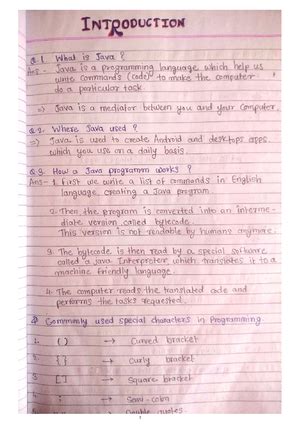 INTRODUCTION
Q.1. What is Java ?
Ans - Java is a programming language which help us
write commands (code) to make the computer
do a particular task
⇒ Java is a mediator between you and your computer.
Q.2. Where Java used ?
⇒ Java is used to create Android and desktops apps,
which you use on a daily basis
Q.3. How a Java programm works ?
Ans - 1. First we write a list of commands in English
language, creating a Java program.
2. Then the program is converted into an interme-
diate version called bytecode.
This version is not readable by humans anymore.
3. The bytecode is then read by a special software
called a Java Interpreter which translates it to a
machine friendly language.
4. The computer reads the translated code and
performs the tasks requested.
Commonly used special characters in Programming
1. ( ) → Curved bracket
2. { } → Curly bracket
3. [ ] → Square bracket
4. ; → Semi-colon
quotes